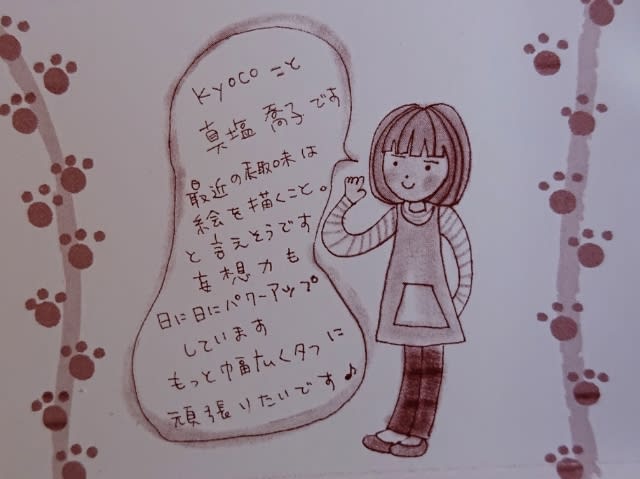 kyocoこと
真塩 喬子です
最近の趣味は
絵を描くこと。
と言えそうです
妄想力も
日に日にパワーアップ
しています
もっと幅広く夕フに
頑張りたいです♪